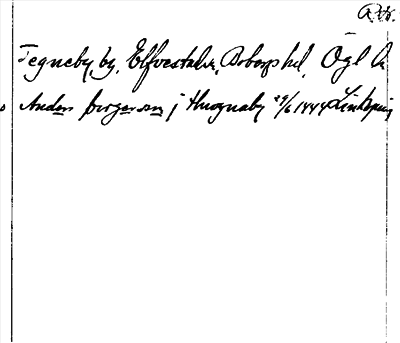 Tegneby by, Elfvestads, Bobergs hd, Ögl A
Anders birgersson j thyngnaby 29/6 1444 Linköping